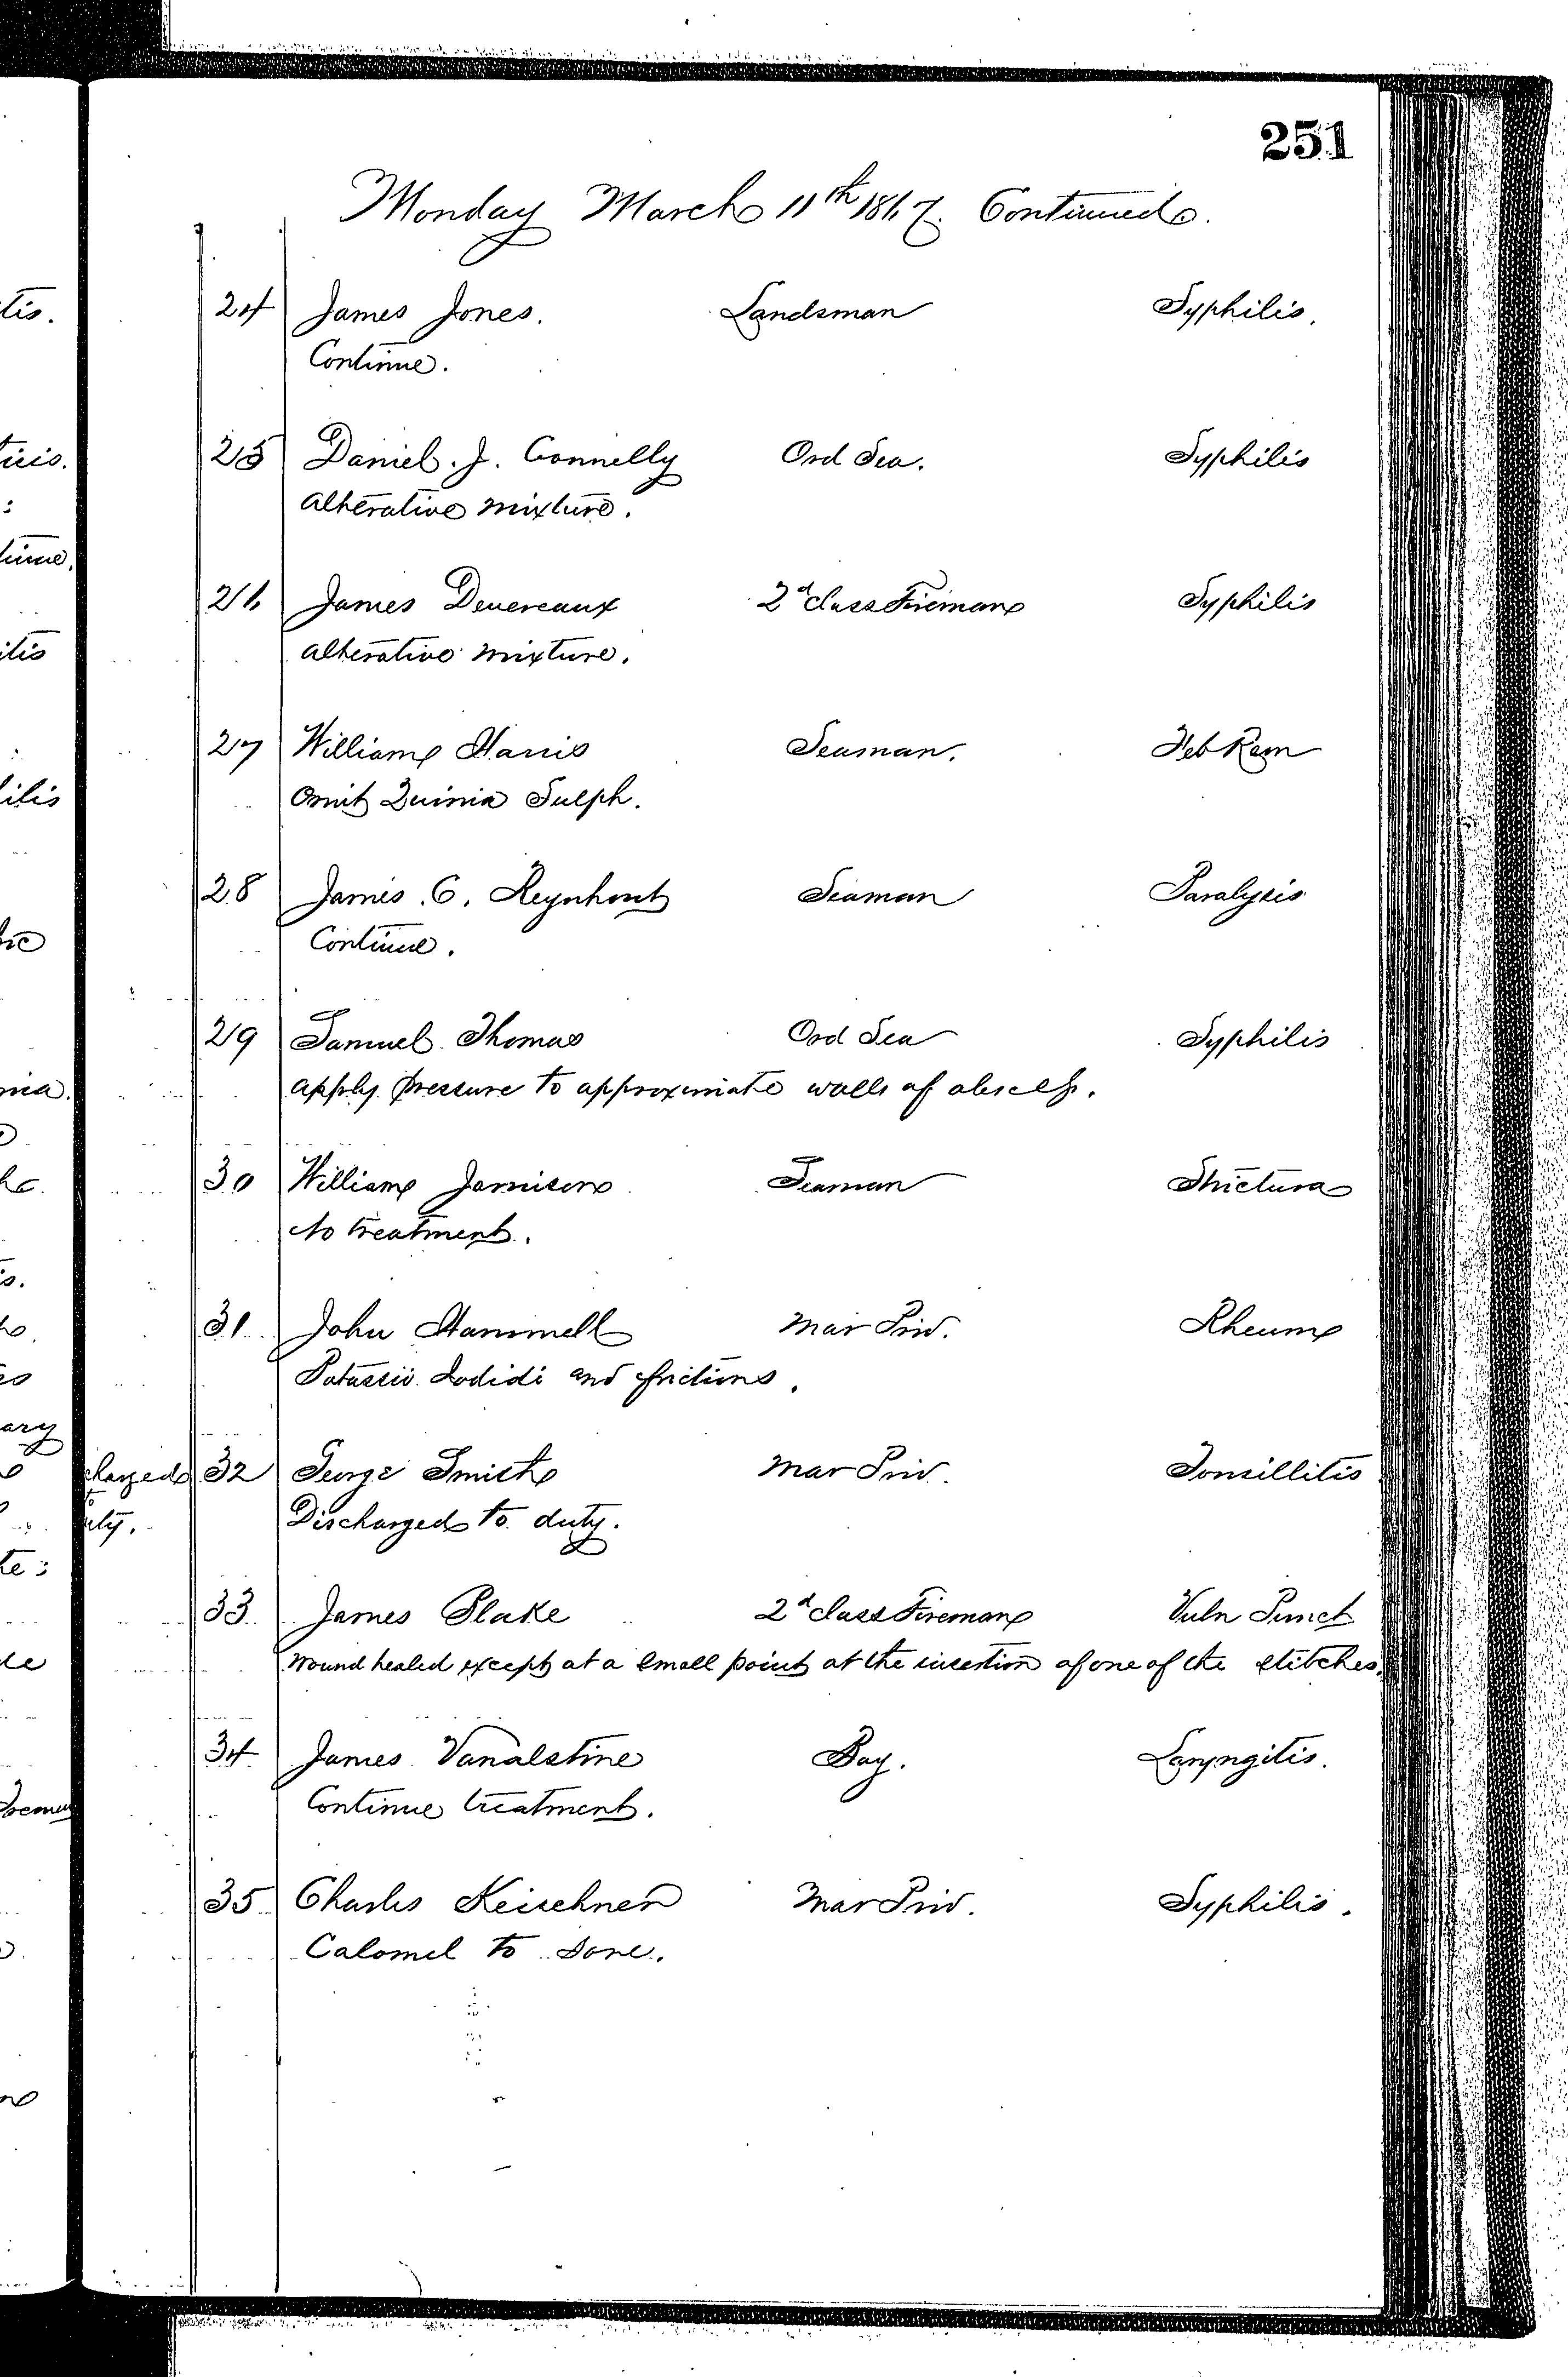 251
Monday March 11th 1867. Continued.
24 James Jones. Landsman Syphilis.
Continue.
25 Daniel. J. Connelly Ord Sea. Syphilis
alterative mixture.
26 James Devereaux 2d class Fireman Syphilis
alterative mixture.
27 William Harris Seaman. Feb Rem
Omit Quinia Sulph.
28 James. C. Reynhout Seaman Paralysis
Continue.
29 Samuel Thomas Ord Sea Syphilis
apply pressure to approximate walls of abscess.
30 William Jamison Seaman Strictura
No treatment.
31 John Hammell Mar Priv. Rheum
Potassii Iodidi and frictions.
32 George Smith Mar Priv. Tonsillitis
Discharged to duty.
33 James Blake 2d class Fireman Vuln Punct
Wound healed except at a small point at the insertion of one of the stitches.
34 James Vanalstine Boy. Laryngitis.
Continue treatment.
35 Charles Keischner Mar Priv. Syphilis.
Calomel to sore.